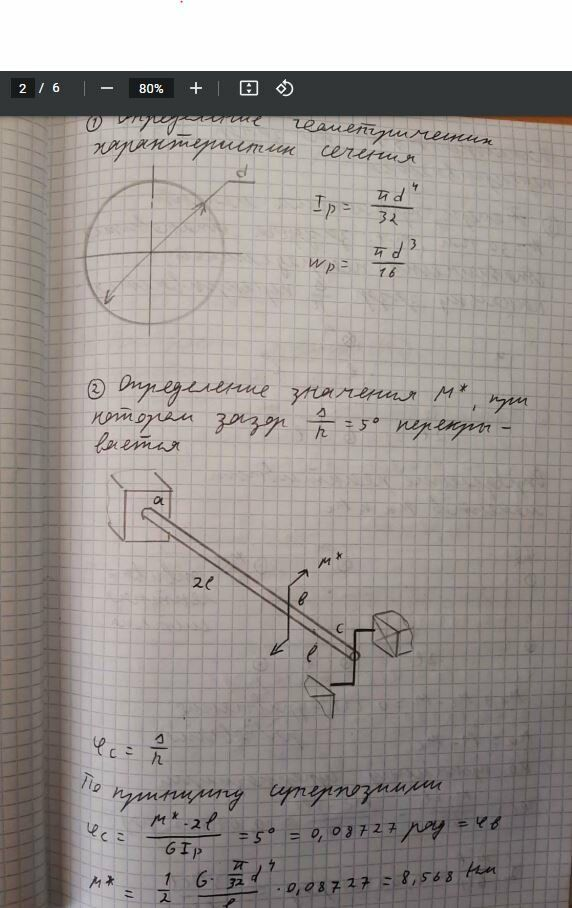 2 / 6 — 80% +
① Определение геометрических
характеристик сечения
d
Ip = πd⁴/32
Wp = πd³/16
② Определение значения M*, при
котором зазор Δ/h = 5° перекры-
вается
a
M*
2l
в
c
l
φc = Δ/h
По принципу суперпозиции
φc = M*·2l/GIp = 5° = 0,08727 рад = φв
M* = 1/2 G·π/32 d⁴/l · 0,08727 = 8,568 Нм